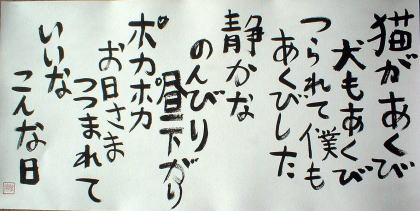 猫があくび
犬もあくび
つられて僕も
あくびした
静かな
のんびり
昼下がり
ポカポカ
お日さま
つつまれて
いいな
こんな日